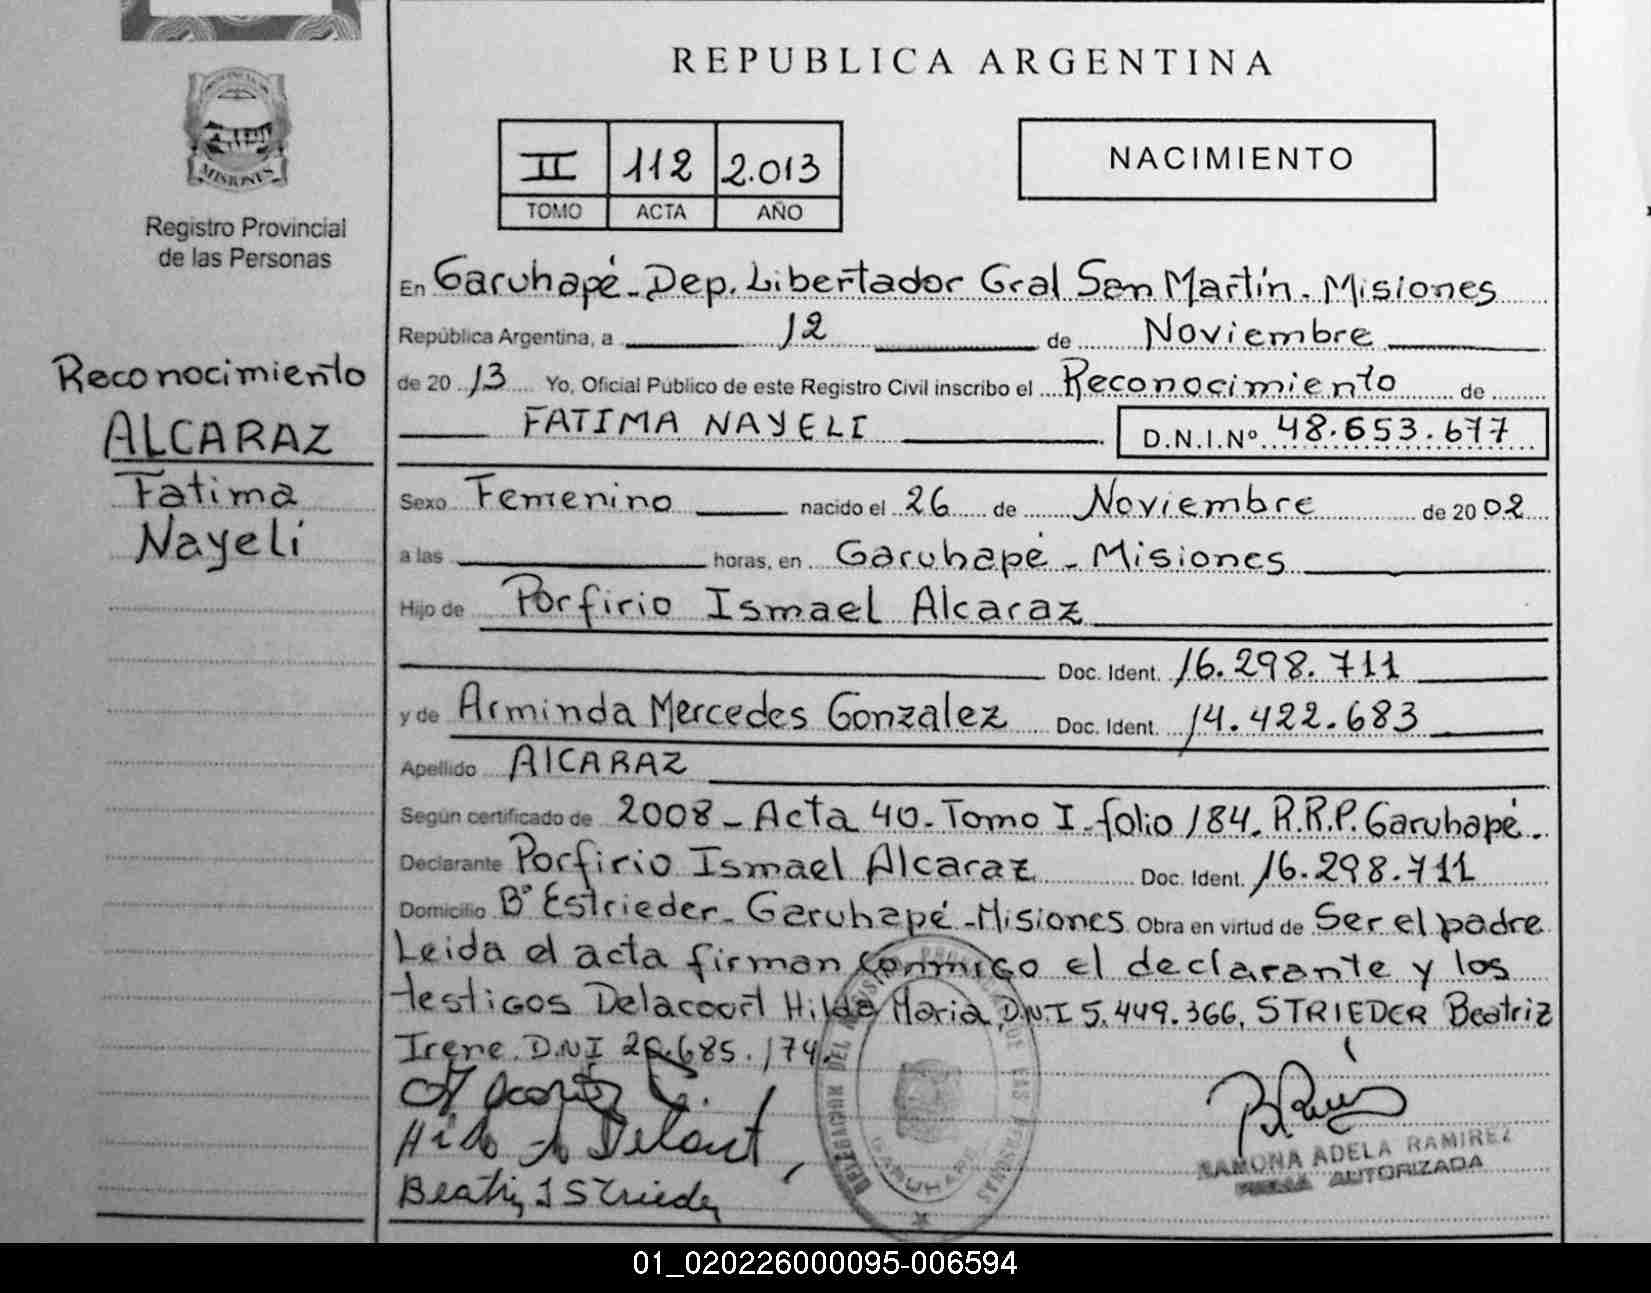 REPUBLICA ARGENTINA
II 112 2.013
TOMO ACTA AÑO
NACIMIENTO
MISIONES
Registro Provincial
de las Personas
Reconocimiento
ALCARAZ
Fatima
Nayeli
En Garuhapé - Dep. Libertador Gral San Martín. Misiones
República Argentina, a 12 de Noviembre
de 20 13 Yo, Oficial Público de este Registro Civil inscribo el Reconocimiento de
FATIMA NAYELI D.N.I.Nº 48.653.677
Sexo Femenino nacido el 26 de Noviembre de 20 02
a las horas, en Garuhapé - Misiones
Hijo de Porfirio Ismael Alcaraz
Doc. Ident. 16.298.711
y de Arminda Mercedes Gonzalez Doc. Ident. 14.422.683
Apellido AlCARAZ
Según certificado de 2008 - Acta 40 - Tomo I - folio 184. R.R.P. Garuhapé.
Declarante Porfirio Ismael Alcaraz Doc. Ident. 16.298.711
Domicilio Bº Estrieder - Garuhapé - Misiones Obra en virtud de Ser el padre
Leida el acta firman conmigo el declarante y los
testigos Delacourt Hilda Maria D.N.I 5.449.366, STRIEDER Beatriz
Irene. D.N.I .685.174.
Beatriz I Strieder
GARUHAPE
RAMONA ADELA RAMIREZ
AUTORIZADA
01_020226000095-006594